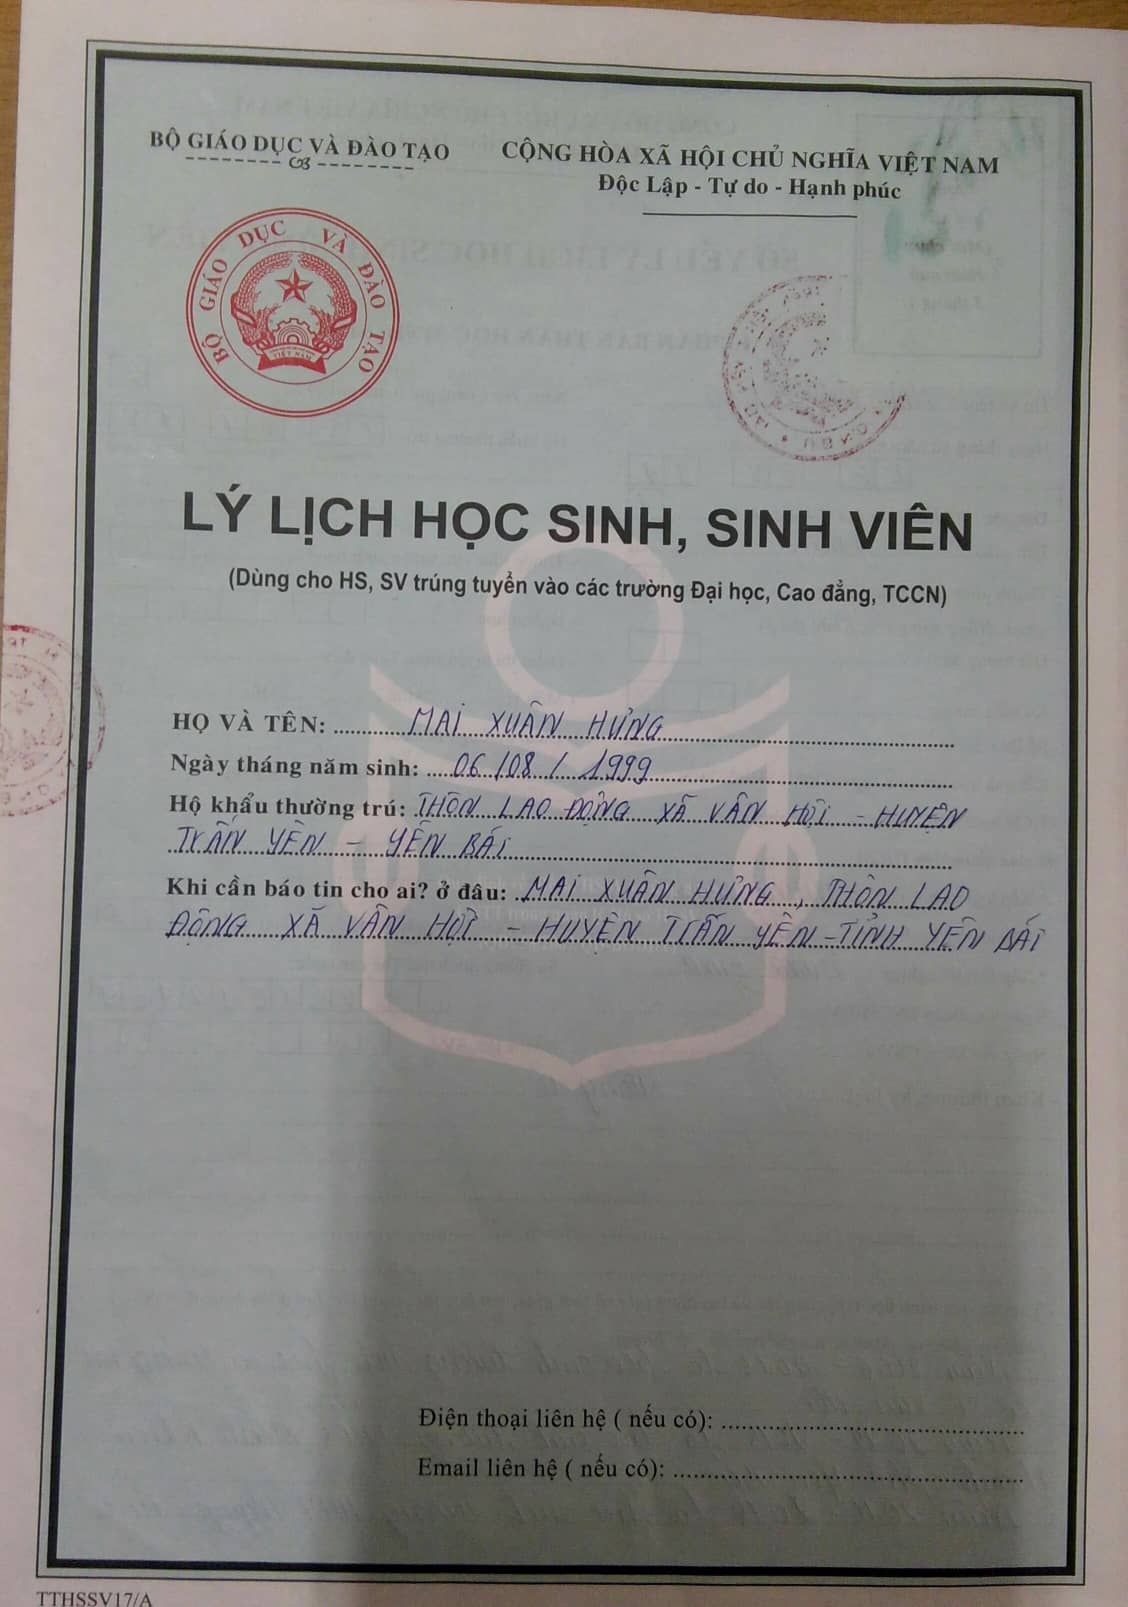 BỘ GIÁO DỤC VÀ ĐÀO TẠO
CỘNG HÒA XÃ HỘI CHỦ NGHĨA VIỆT NAM
Độc Lập - Tự do - Hạnh phúc
BỘ GIÁO DỤC VÀ ĐÀO TẠO
VIỆT NAM
LÝ LỊCH HỌC SINH, SINH VIÊN
(Dùng cho HS, SV trúng tuyển vào các trường Đại học, Cao đẳng, TCCN)
HỌ VÀ TÊN: MAI XUÂN HƯNG
Ngày tháng năm sinh: 06/08/1999
Hộ khẩu thường trú: THÔN LAO ĐỘNG XÃ VÂN HỘI - HUYỆN
TRẤN YÊN - YÊN BÁI
Khi cần báo tin cho ai? ở đâu: MAI XUÂN HƯNG, THÔN LAO
ĐỘNG XÃ VÂN HỘI - HUYỆN TRẤN YÊN - TỈNH YÊN BÁI
Điện thoại liên hệ ( nếu có):
Email liên hệ ( nếu có):
TTHSSV17/A